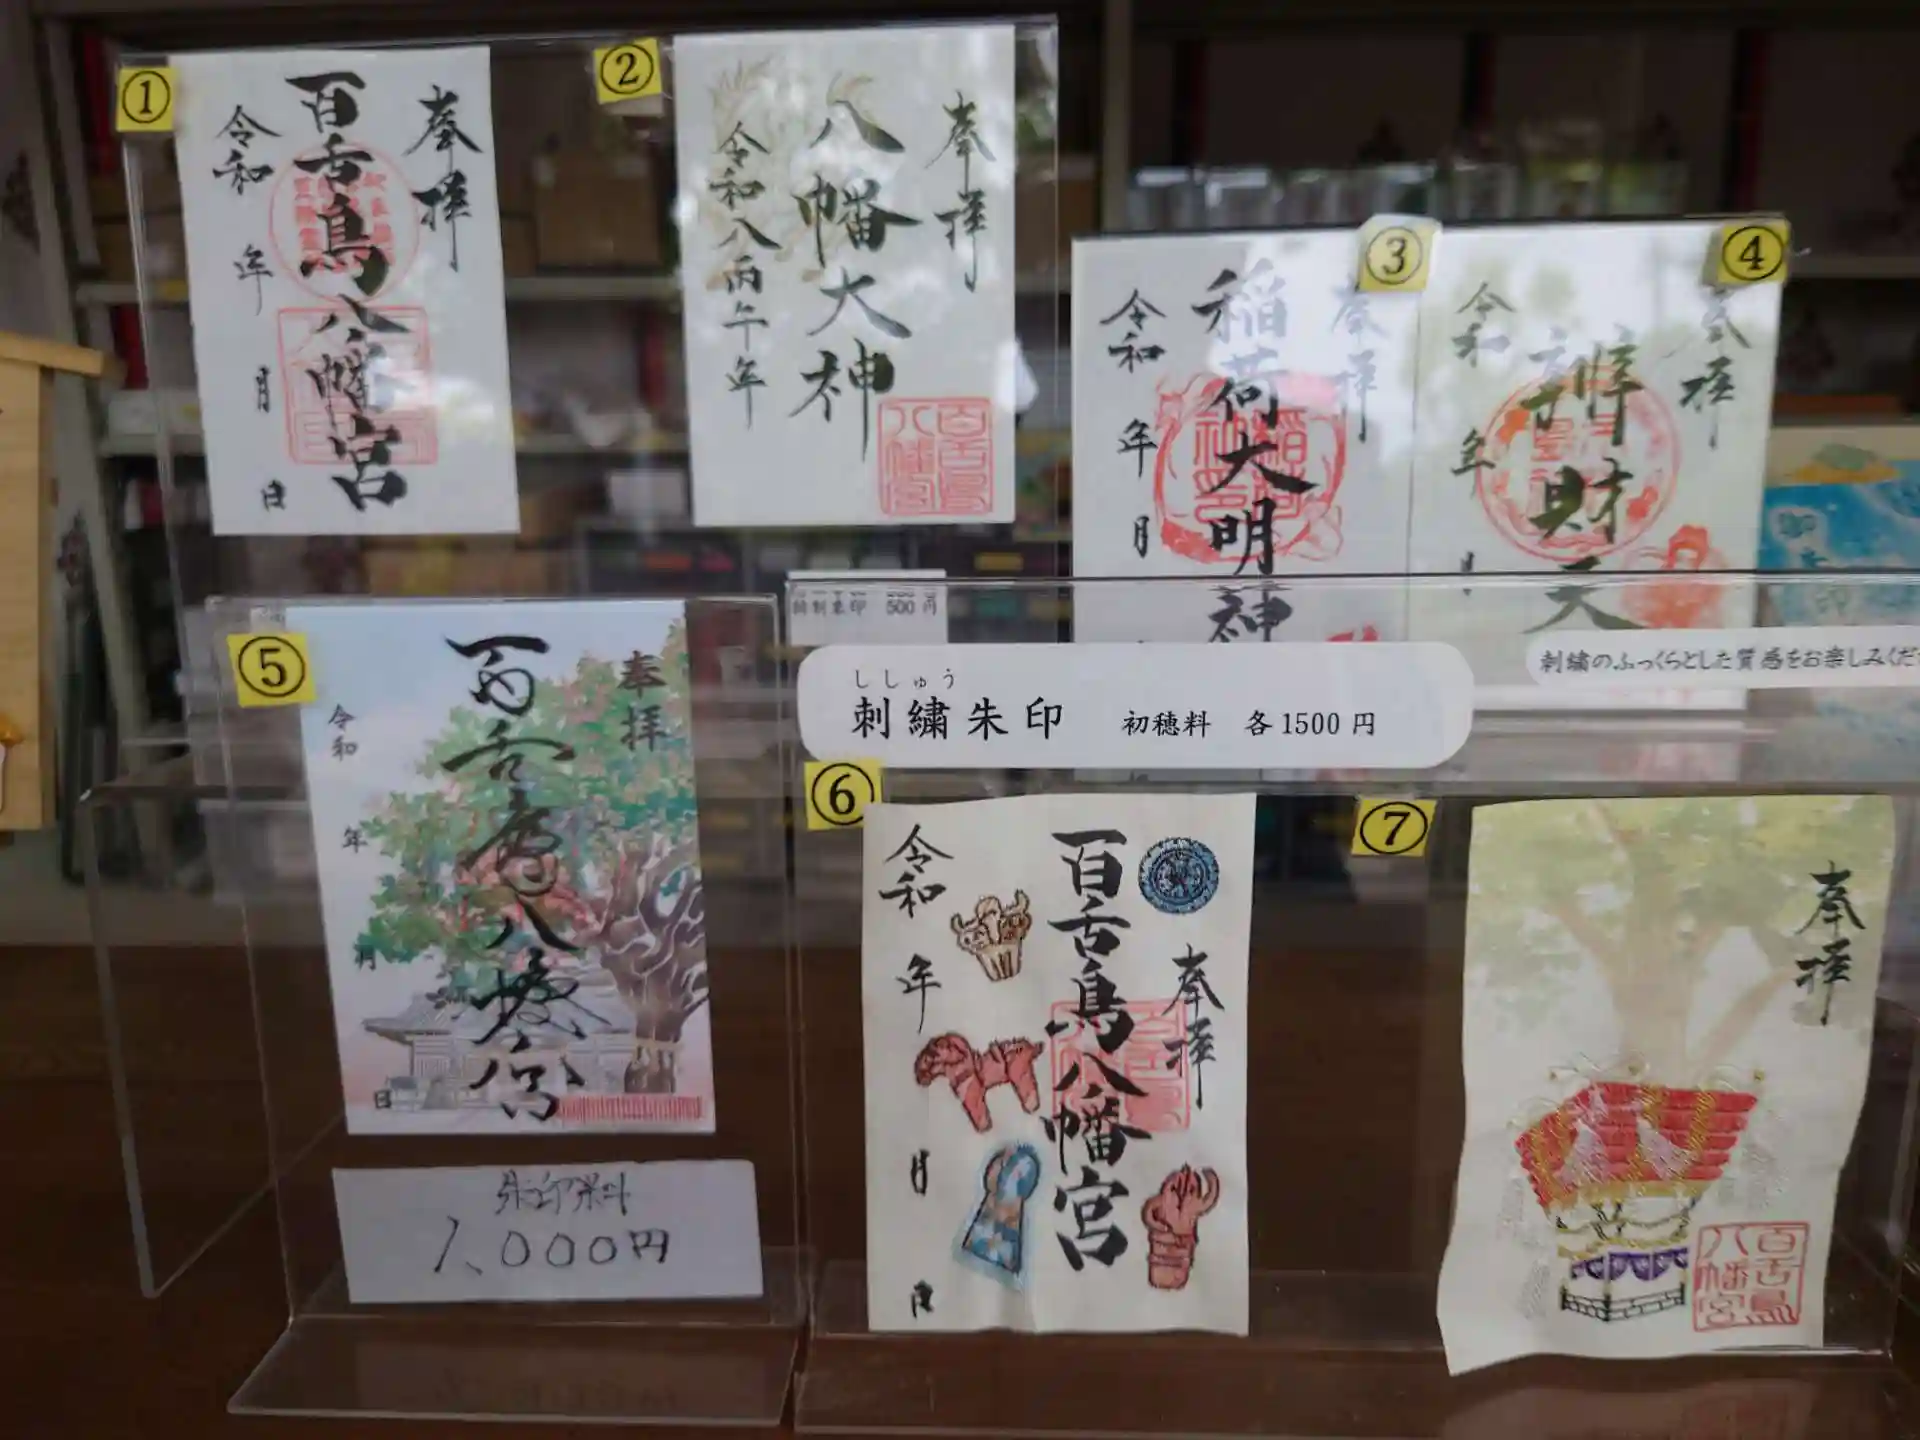 ①
奉拝
百舌鳥八幡宮
令和 年 月 日
②
奉拝
八幡大神
令和八丙午年
百舌鳥
八幡宮
③
奉拝
稲荷大明神
令和 年 月
④
奉拝
辯財天
令和 年 月
500円
⑤
奉拝
百舌鳥八幡宮
令和 年 月 日
朱印料
1,000円
ししゅう
刺繍朱印 初穂料 各1500円
刺繍のふっくらとした質感をお楽しみくだ
⑥
奉拝
百舌鳥八幡宮
令和 年 月 日
⑦
奉拝
百舌鳥
八幡宮